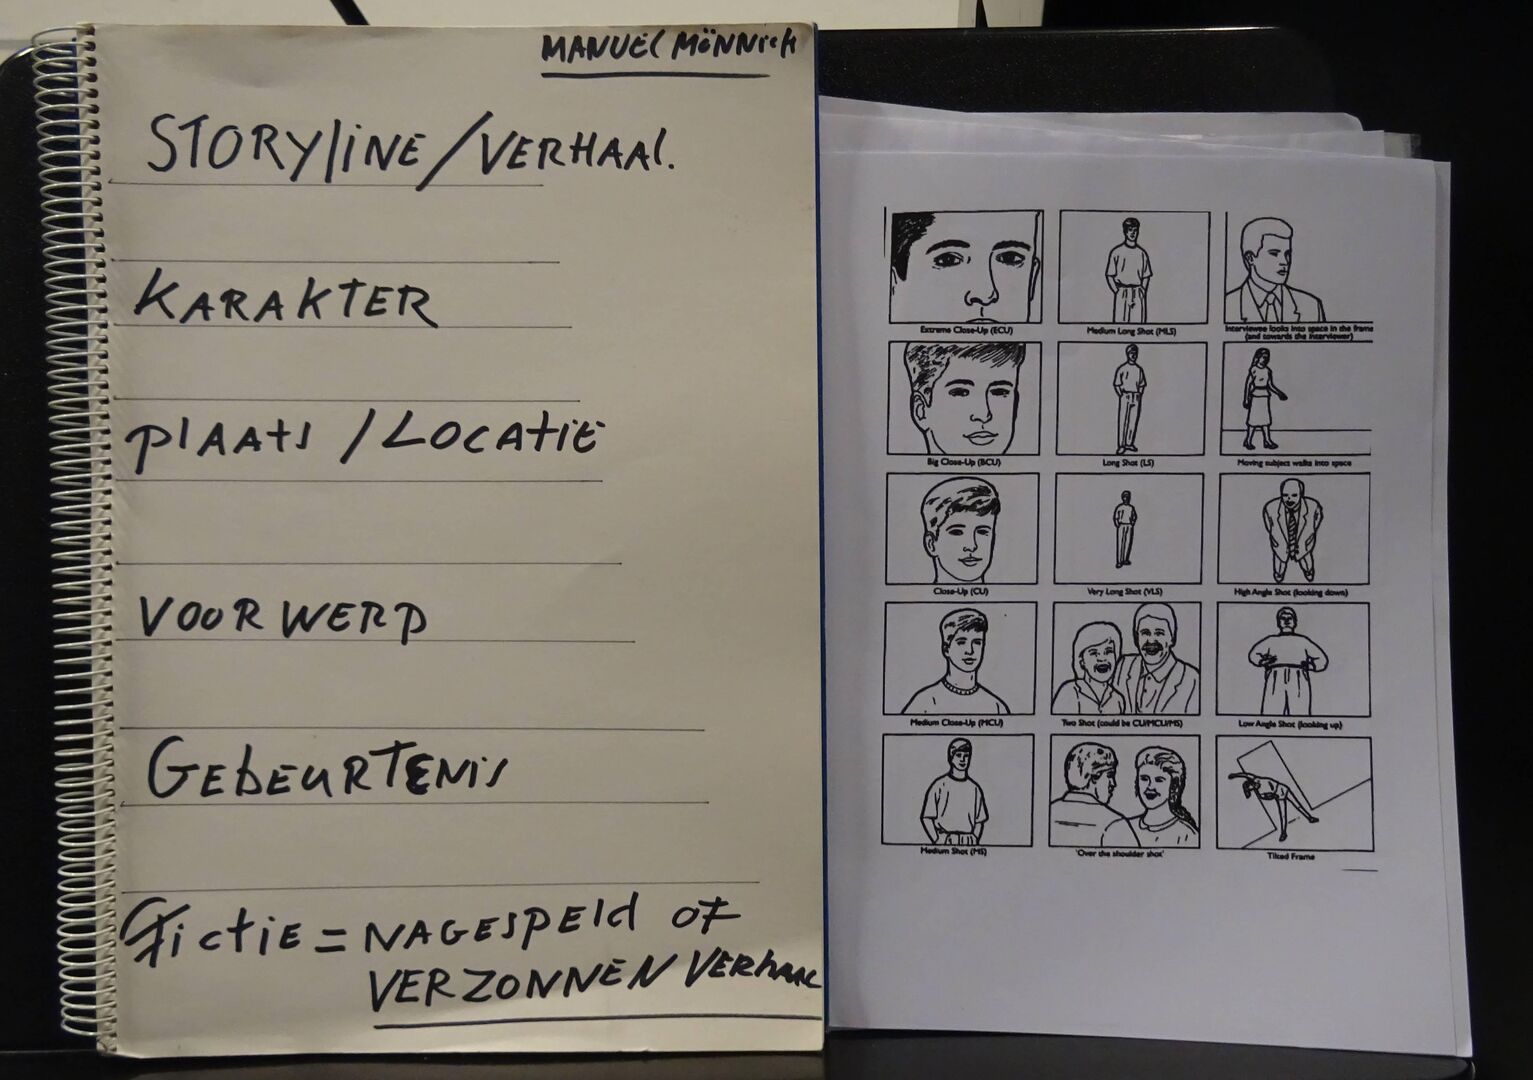 MANUEL MÖNNICH
STORYLINE/VERHAAL.
KARAKTER
PLAATS / LOCATIE
VOORWERP
GEBEURTENIS
FICTIE = NAGESPEELD OF
VERZONNEN VERHAAL
Extreme Close-Up (ECU)
Medium Long Shot (MLS)
Interviewee looks into space in the frame
(and towards the interviewer)
Big Close-Up (BCU)
Long Shot (LS)
Moving subject walks into space
Close-Up (CU)
Very Long Shot (VLS)
High Angle Shot (looking down)
Medium Close-Up (MCU)
Two Shot (could be CU/MCU/MS)
Low Angle Shot (looking up)
Medium Shot (MS)
'Over the shoulder shot'
Tilted Frame